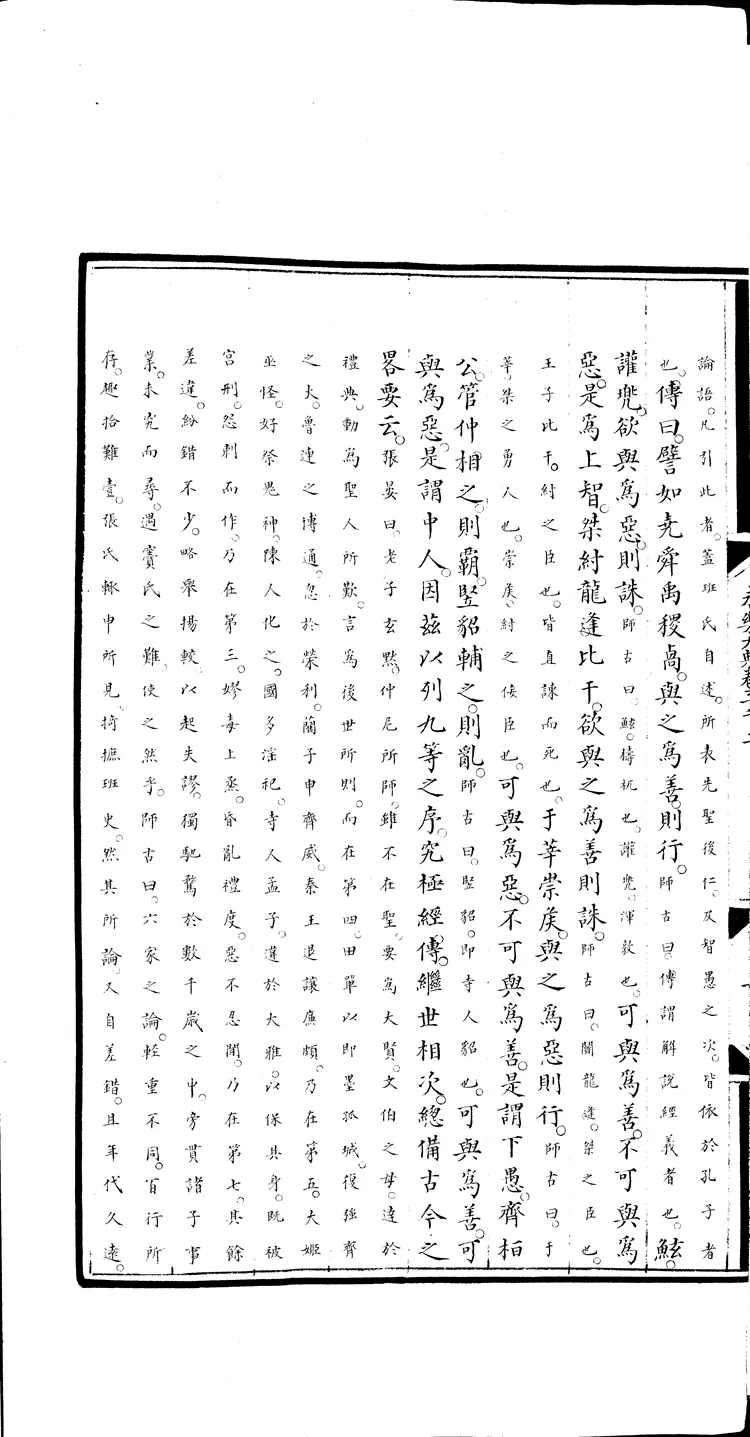 論語。凡引此者。蓋班氏自述。所表先聖後仁。及智愚之次。皆依於孔子者
也。傳曰。譬如堯舜禹稷卨與之爲善。則行。師古曰。傳謂解說經義者也。鮌。
讙兜。欲與爲惡。則誅。師古曰。鮌。檮杌也。讙兜。渾敦也。可與爲善。不可與爲
惡。是爲上智。桀紂龍逢比干。欲與之爲善則誅。師古曰。關龍逢。桀之臣也。
王子比干。紂之臣也。皆直諫而死也。于莘崇矦。與之爲惡則行。師古曰。于
莘。桀之勇人也。崇矦。紂之佞臣也。可與爲惡。不可與爲善。是謂下愚。齊桓
公。管仲相之。則霸。豎貂輔之。則亂。師古曰。豎貂。即寺人貂也。可與爲善。可
與爲惡。是謂中人。因茲以列九等之序。究極經傳。繼世相次。總備古今之
畧要云。張晏曰。老子玄默。仲尼所師。雖不在聖。要爲大賢。文伯之母。達於
禮典。動爲聖人所歎。言爲後世所則。而在第四。田單以即墨孤城。復強齊
之大。魯連之博通。忽於榮利。藺子申齊威。秦王退讓廉頗。乃在第五。大姬
巫怪。好祭鬼神。陳人化之。國多淫祀。寺人孟子。違於大雅。以保其身。既被
宮刑。怨刺而作。乃在第三。嫪毐上烝。昏亂禮度。惡不忍聞。乃在第七。其餘
差違。紛錯不少。略舉揚較。以起失謬。獨馳騖於數千歲之中。旁貫諸子事
業。未究而尋。遇竇氏之難。使之然乎。師古曰。六家之論。輕重不同。百行所
存。趣捨難壹。張氏輒申所見。掎摭班史。然其所論。又自差錯。且年代久遠。